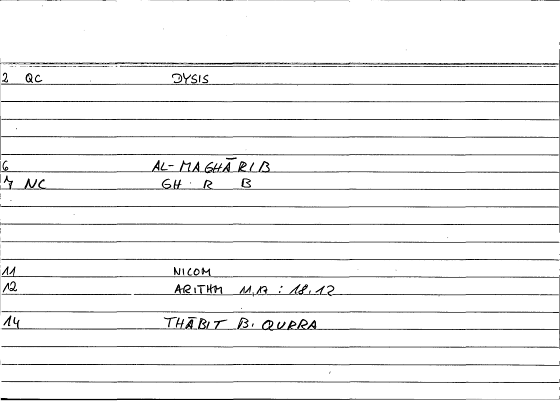 2 QC DYSIS
6 AL-MAGHĀRIB
7 NC GH R B
11 NICOM
12 ARITHM 11,17 : 18,12
14 THĀBIT B. QURRA